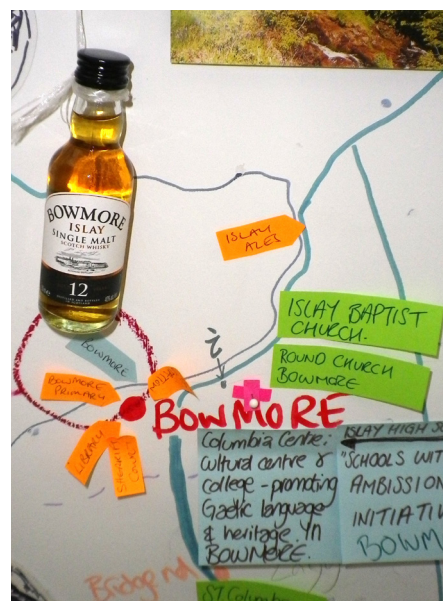 BOWMORE
ISLAY
SINGLE MALT
SCOTCH WHISKY
12
ISLAY
ALES
ISLAY BAPTIST
CHURCH.
ROUND CHURCH
BOWMORE
BOWMORE
BOWMORE
PRIMARY
LIBRARY
i
BOWMORE
Columbia Centre:
Cultural centre &
college - promoting
Gaelic language
& heritage. In
BOWMORE.
ISLAY HIGH
"SCHOOLS WIT
AMBISSION
INITIATIV
BOWM
Bridge
ST. Columba